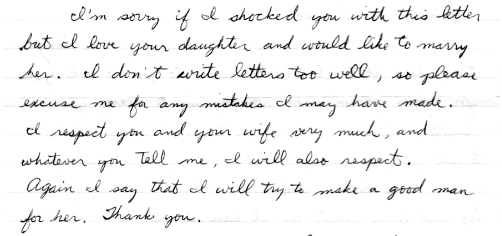 I'm sorry if I shocked you with this letter
but I love your daughter and would like to marry
her. I don't write letters too well, so please
excuse me for any mistakes I may have made.
I respect you and your wife very much, and
whatever you tell me, I will also respect.
Again I say that I will try to make a good man
for her. Thank you.